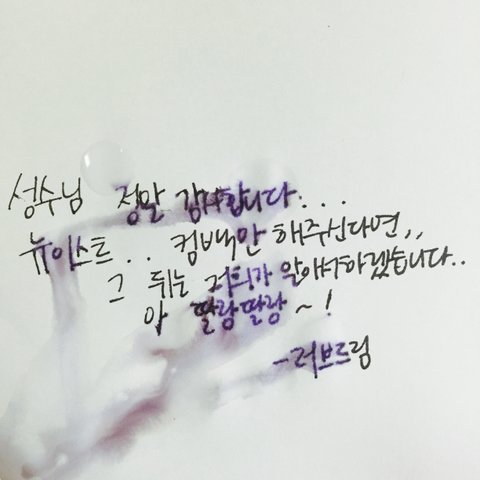 성수님 정말 감사합니다...
뉴이스트.. 컴백만 해주신다면,,
그 뒤는 저희가 알아서하겠습니다..
아 딸랑딸랑~!
-러브드림